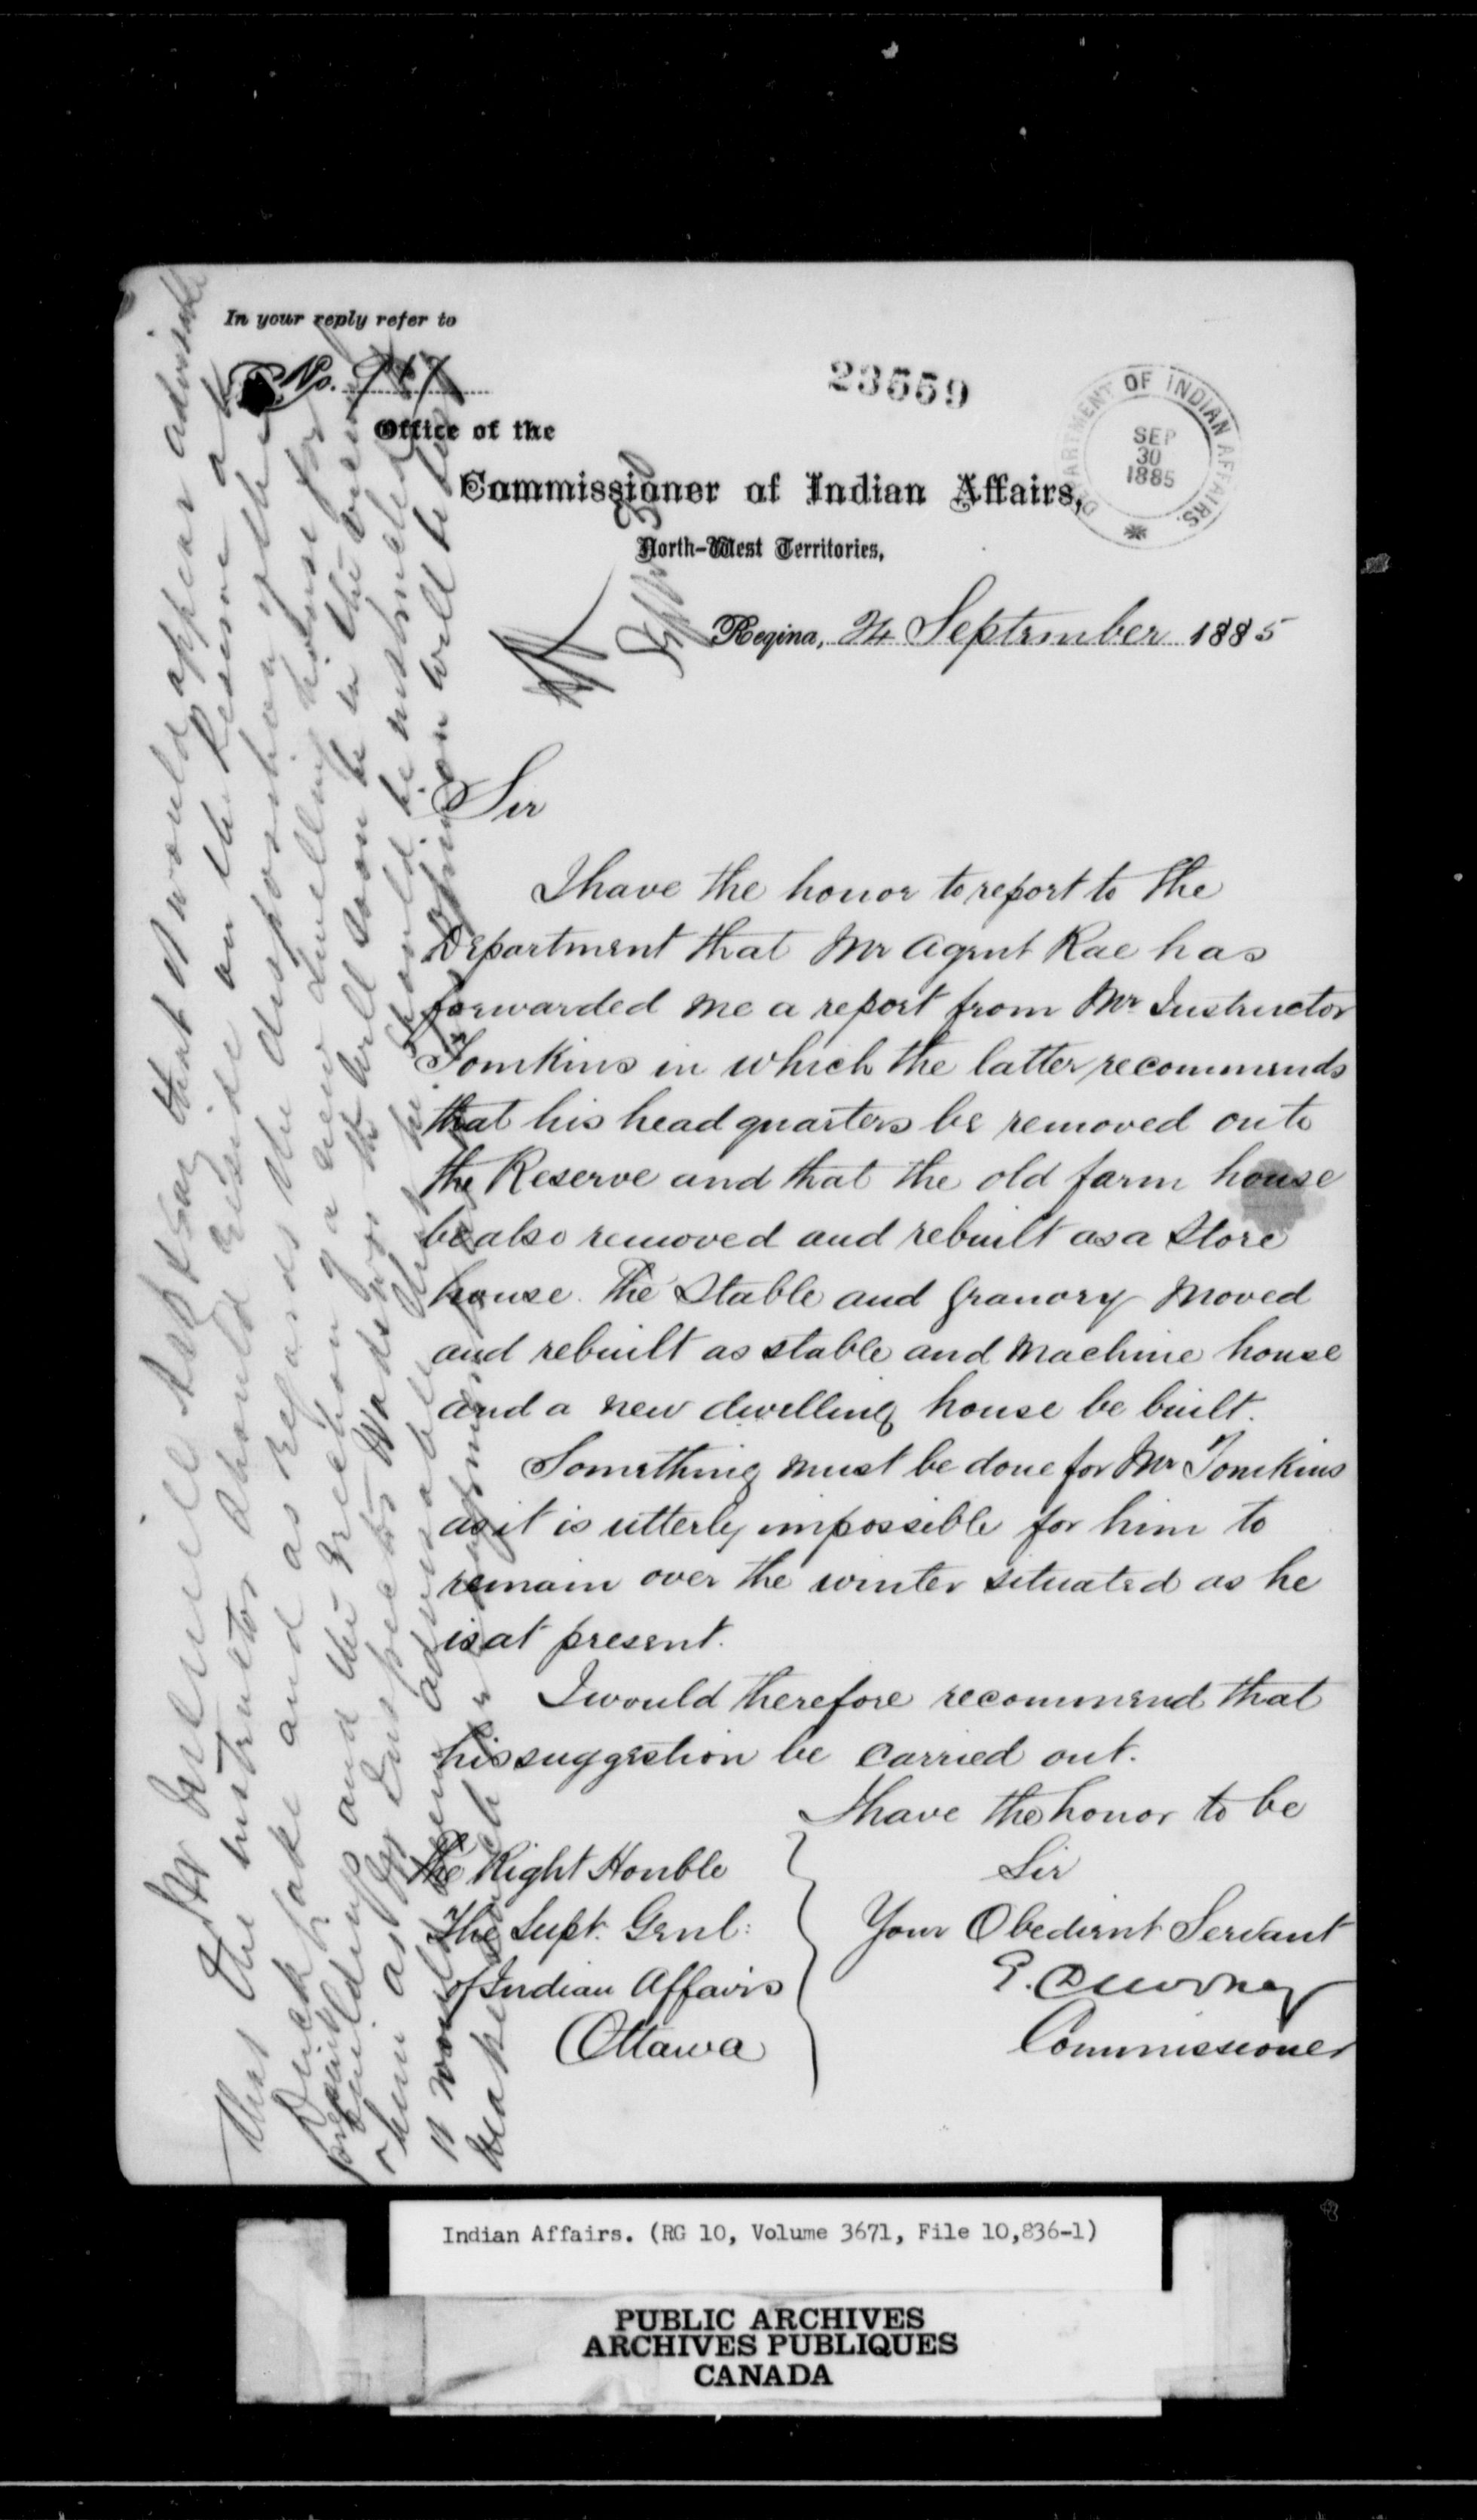 In your reply refer to
No. 947
23559
DEPARTMENT OF INDIAN AFFAIRS.
SEP
30
1885
Office of the
Commissioner of Indian Affairs,
North-West Territories,
Regina, 24 September 1885
Sir
I have the honor to report to the
Department that Mr Agent Rae has
forwarded me a report from Mr Instructor
Tomkins in which the latter recommends
that his head quarters be removed on to
the Reserve and that the old farm house
be also removed and rebuilt as a Store
house. The Stable and Granory moved
and rebuilt as stable and machine house
and a new dwelling house be built.
Something must be done for Mr Tomkins
as it is utterly impossible for him to
remain over the winter situated as he
is at present.
I would therefore recommend that
his suggestion be carried out.
I have the honor to be
Sir
Your Obedient Servant
E. Dewdney
Commissioner
The Right Honble
The Supt. Genl:
of Indian Affairs
Ottawa
say that it would appear advisable
that the instructor should reside on the Reserve at
Duck Lake and as regards the disposition of the
buildings and the erection of a new dwelling house for
him as Inspector Wadsworth will soon be in the
it would advisable that he should be instructed
make
Indian Affairs. (RG 10, Volume 3671, File 10,836-1)
PUBLIC ARCHIVES
ARCHIVES PUBLIQUES
CANADA